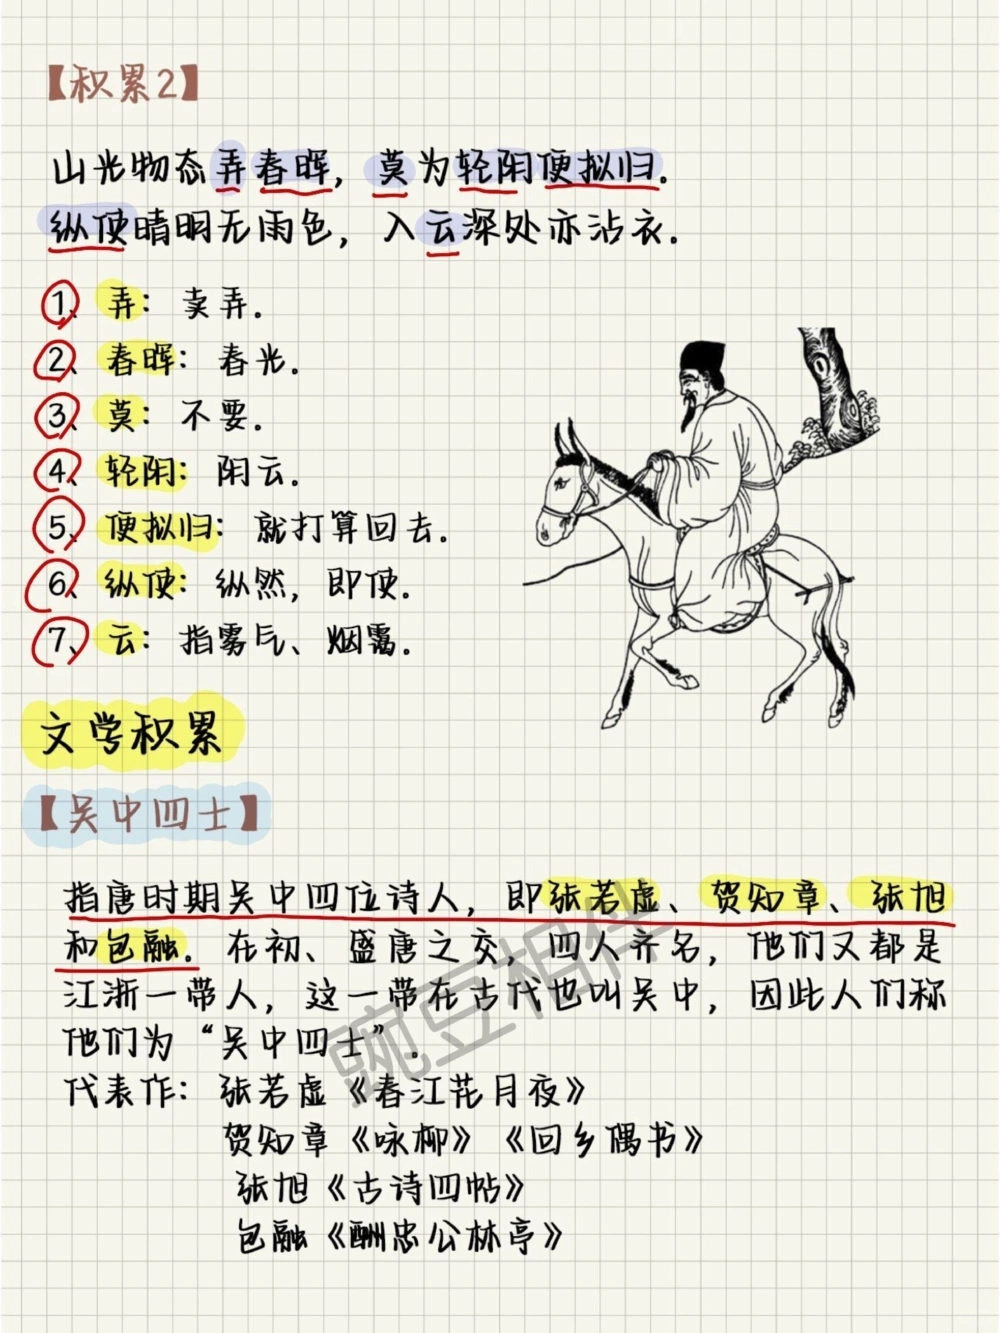 【积累2】
山光物态弄春晖，莫为轻阴便拟归.
纵使晴明无雨色，入云深处亦沾衣.
1、弄：卖弄.
2、春晖：春光.
3、莫：不要.
4、轻阴：阴云.
5、便拟归：就打算回去.
6、纵使：纵然，即使.
7、云：指雾气、烟霭.
文学积累
【吴中四士】
指唐时期吴中四位诗人，即张若虚、贺知章、张旭
和包融.在初、盛唐之交，四人齐名，他们又都是
江浙一带人，这一带在古代也叫吴中，因此人们称
他们为“吴中四士”.
代表作：张若虚《春江花月夜》
贺知章《咏柳》《回乡偶书》
张旭《古诗四帖》
包融《酬忠公林亭》
豌豆相伴